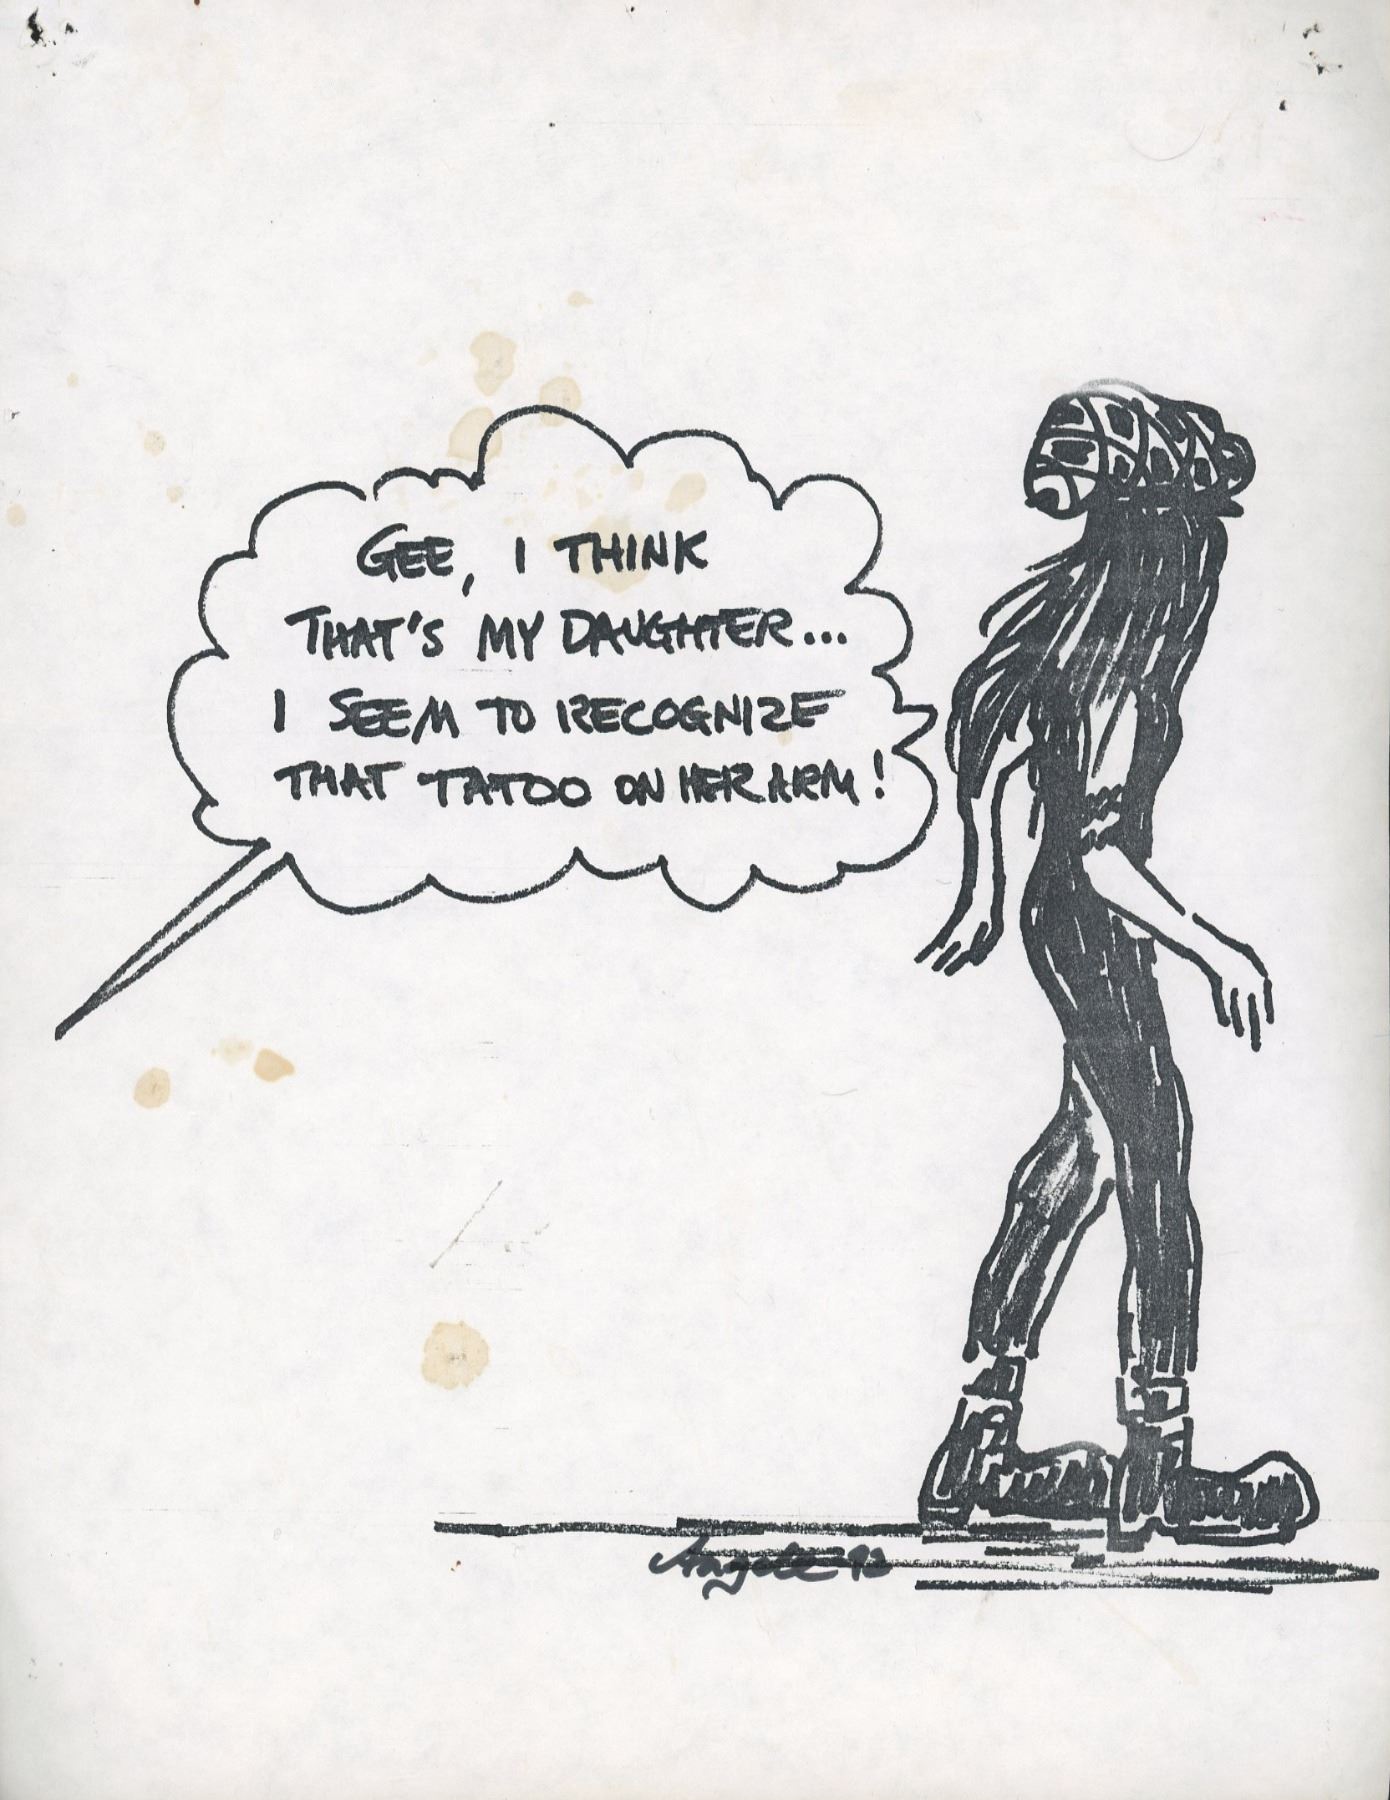 GEE, I THINK
THAT'S MY DAUGHTER...
I SEEM TO RECOGNIZE
THAT TATOO ON HER ARM!
92